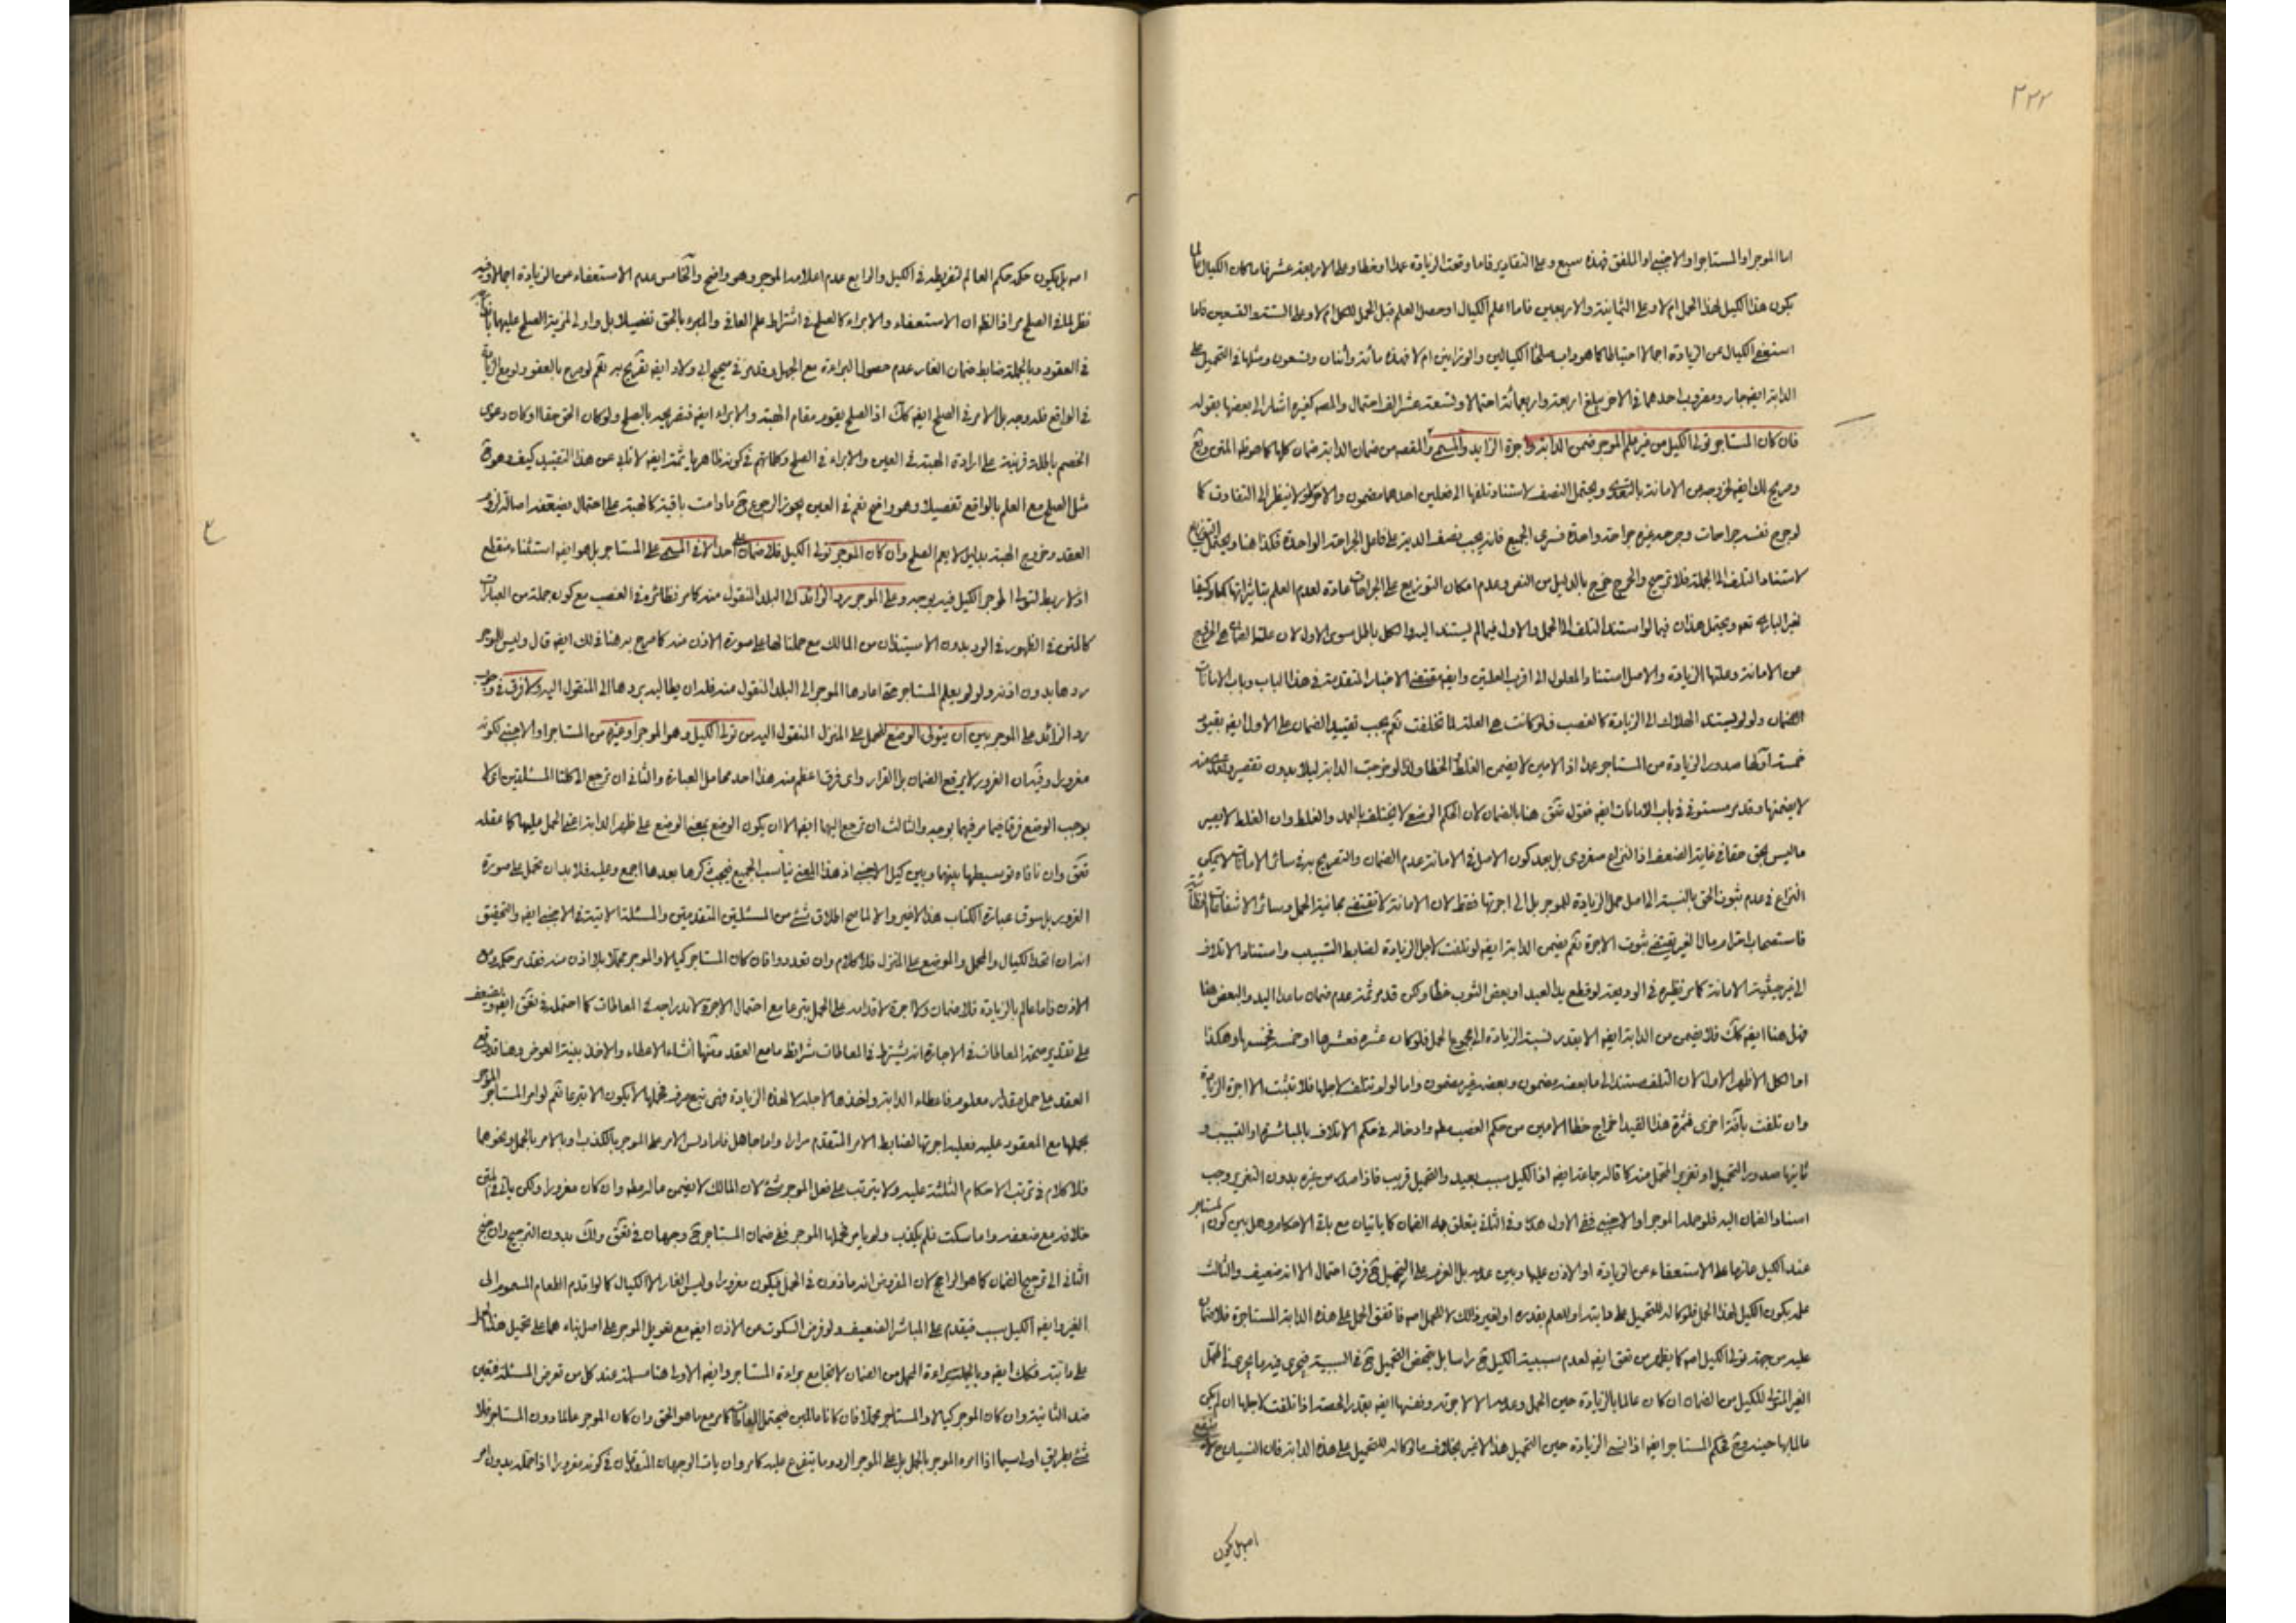 ٢٢٢
اما الموجر او المستاجر او الاجنبي او الملفق فهذه سبع وعلى التقادير فاما وقعت الزيادة عمدا او خطا وعلى الاربعة عشر فاما كان الكيال لما
يكون هذا الكيل لهذا الحمل ام لا وعلى الثمانية والاربعين فاما اعلم الكيال او حصل العلم قبل الحمل للكل ام لا وعلى الستة والتسعين فاما
استعفى الكيال عن الزيادة اجمالا احتياطا كما هو داب صلحاء الكيالين والوزانين ام لا فهذه مائة واثنان وتسعون ومثلها في التحميل على
الدابة ايضا جار ومضروب احدهما في الاخر يبلغ اربعة واربعمائة احتمالا وتسعة عشر الف احتمال والمصه كغيره اشار الى بعضها بقوله
فان كان المستاجر تولى الكيل من غير علم الموجر ضمن الدابة واجرة الزايد والمسمى والمقصه من ضمان الدابة ضمان كلها كما هو ظه المتن وقع
وصريح لك ايضا لخروجه من الامانة بالتعدى ويحتمل النصف لاستناد تلفها الى فعلين احدهما مضمون والاخر لا ينظر الى التفاوت كما
لو جرح نفسه جراحات وجرحه غيره جراحة واحدة فسرى الجميع فانه يجب نصف الدية على فاعل الجراحة الواحدة فكذا هنا ويحتمل التوزيع
لاستناد التلف الى الجملة فلا ترجيح والجرح خرج بالدليل من النص وعدم امكان التوزيع على الجراحات عادة لعدم العلم بتاثيراتها كما وكيفا
لغير الباري تعه ويحتمل هذان فيما لو استند التلف الى الحمل والاول فيما لم يستند اليه والكل باطل سوى الاول لان علة الضمان هي الخروج
عن الامانة وعلتها الزيادة والاصل استناد المعلول الى اقرب العلتين وايضا مقتضى الاخبار المتقدمة في هذا الباب وباب الامانات
الضمان ولو لم يستند الهلاك الى الزيادة كالغصب فلو كانت هي العلة لما تخلفت نعم يجب تقييد الضمان على الاول ايضا بقيود
خمسة اولها صدور الزيادة من المستاجر عمدا اذ الامين لا يضمن الغلط والخطا ولذا لو خرجت الدابة ليلا بدون تقصير
لا يضمنها وقد مر مستوفى في باب الامانات ايضا فقول تفق هنا بالضمان لان الحكم الوضعي لا يختلف بالعمد والغلط وان الغلط لا يصير
ما ليس بحق حقا في غاية الضعف اذ النزاع صغروى بل بعد كون الاصل في الامانة عدم الضمان والتصريح به في سائر الامانات لا يمكن
النزاع في عدم ثبوت الحق بالنسبة الى اصل حمل الزيادة للموجر بل الى اجرتها فقط لان الامانة لا تقتضى مجانية الحمل وسائر الانتفاعات
فاستصحاب احترام مال الغير يقتضى ثبوت الاجرة نعم يضمن الدابة ايضا لو تلفت لاجل الزيادة لضابط التسبيب واستناد الاتلاف
الى غير حيثية الامانة كما مر نظيره في الوديعة لو قطع يد العبد او بعض الثوب خطا ولكن قد مر ثمة عدم ضمان ما عدا اليد والبعض هنا
فهل هنا ايضا كك فلا يضمن من الدابة ايضا الا بقدر نسبة الزيادة الى مجموع الحمل فلو كان عشره فعشرها او خمسه فخمسها وهكذا
او الكل الاظهر الاول لان التلف مستند الى ما بعضه مضمون وبعضه غير مضمون واما لو لم تتلف لاجلها فلا تثبت الا اجرة الزيادة
وان تلفت بافة اخرى فثمرة هذا القيد اخراج خطا الامين من حكم الغصب مطه وادخاله في حكم الاتلاف بالمباشرة او التسبيب و
ثانيها صدور التحميل او تغرير المحمل منه كما قاله جماعة ايضا اذ الكيل سبب بعيد والتحميل قريب فاذا صدر من غيره بدون التغرير وجب
اسناد الضمان اليه فلو حمله الموجر او الاجنبي ففى الاول هدر وفي الثاني يتعلق به الضمان كما ياتيان مع باقي الاحكام وهل بين كون المستاجر
عند الكيل عازما على الاستعفاء عن الزيادة او الاذن عليها وبين عدمه بل العزم على التحميل فرق احتمال الا انه ضعيف والثالث
علمه بكون الكيل لهذا الحمل فلو كاله للتحميل على دابته او للعلم بقدره او لغير ذلك لا للحمل اصه فاتفق الحمل على هذه الدابة المستاجرة فلا ضمان
عليه من جهة تولى الكيل اصه كما يظهر من تفق ايضا لعدم سببية الكيل ح راسا بل يتمحض التحميل ح في السببية فيجرى فيه ما يجرى في المحمل
الغير المتولى للكيل من الضمان ان كان عالما بالزيادة حين الحمل وعدمه الا الاجرة ونصفها ايضا بقدر الحصة اذا تلفت لاجلها ان لم يكن
عالما بها حينه وح فحكم المستاجر ايضا اذا نسى الزيادة حين التحميل هذا الاخير بخلاف ما لو كاله للتحميل على هذه الدابة فان النسيان ح لا ينفع
اصه بل يكون
اصه بل يكون حكمه حكم العالم لتفريطه في الكيل والرابع عدم اعلامه الموجر وهو واضح والخامس عدم الاستعفاء عن الزيادة اجمالا وفيه
نظر لما في الصلح مر اذ الظه ان الاستعفاء والابراء كالصلح في اشتراط علم العافى والمبرء بالحق تفصيلا بل واولى لمزية الصلح عليهما
في العقود وبالجملة ضابط ضمان الغار عدم حصول البراءة مع الجهل وقد مر في صحيح ابى ولاد ايضا تصريح به نعم لو صرح بالعفو ولو مع الزيادة
في الواقع فله وجه بل الامر في الصلح ايضا كك اذ الصلح يقوم مقام الهبة والابراء ايضا فتصريحه بالصلح ولو كان الحق حقا او كان دعوى
الخصم باطلة قرينة على ارادة الهبة في العين والابراء في الصلح وكلماتهم في كونه ظاهريا ثمة ايضا لا تابى عن هذا التقييد كيف وهو ح
مثل الصلح مع العلم بالواقع تفصيلا وهو واضح نعم في العين يجوز الرجوع ح ما دامت باقية كالهبة على احتمال يضعفه اصالة لزوم
العقد وخروج الهبة بدليل لا يعم الصلح وان كان الموجر تولى الكيل فلا ضمان على احد الا في المسمى على المستاجر بل هو ايضا استثناء منقطع
اذ لا ربط لتولى الموجر الكيل فيه بوجه وعلى الموجر رد الزائد الى البلد المنقول منه كما مر نظائره في الغصب مع كون جملة من العبارات
كالمتن في الظهور في الرد بدون الاستيذان من المالك مع حملنا لها على صورة الاذن منه كما صرح به هنا في لك ايضا قال وليس للموجر
ردها بدون اذنه ولو لم يعلم المستاجر حتى اعادها الموجر الى البلد المنقول منه فله ان يطالبه بردها الى المنقول اليه ولا فرق في وجوب
رد الزائد على الموجر بين ان يتولى الوضع للحمل على المنزل المنقول اليه من تولى الكيل وهو الموجر او غيره من المستاجر او الاجنبي لكونه
مغرورا وفيه ان الغرور لا يرفع الضمان بل القرار واى فرق اعظم منه هذا احد محامل العبارة والثاني ان ترجع الى كلتا المسئلتين اى لا
يوجب الوضع فرقا فيما مر فيهما بوجه والثالث ان ترجع اليها ايضا الا ان يكون الوضع بمعنى الوضع على ظهر الدابة اعنى الحمل عليها كما عقله
تفق وان نافاه توسيطها بينهما وبين كيل الاجنبي اذ هذا المعنى يناسب الجميع فيجب ذكرها بعدها اجمع وعليه فلا بد ان تحمل على صورة
الغرور بل سوق عبارة الكتاب هذا الاخير والا لما صح اطلاق شئ من المسئلتين المتقدمتين والمسئلة الاتية في الاجنبي ايضا والتحقيق
انه ان اتحد الكيال والمحمل والموضع على المنزل فلا كلام وان تعددوا فان كان المستاجر كيالا والموجر محملا بلا اذن منه فقد مر حكمه ومع
الاذن فاما عالم بالزيادة فلا ضمان ولا اجرة لاقدامه على الحمل تبرعا مع احتمال الاجرة لاندراجه في المعاطات كما احتمله في تفق ايضا ويضعف
على تقدير صحة المعاطات في الاجارة انه يشترط في المعاطات شرائط ما مع العقد ومنها انشاء الاعطاء والاخذ بنية العوض وهنا قد وقع
العقد على حمل مقدار معلوم فاعطاء الدابة واخذها لاجله لا لهذه الزيادة فهى تبع صرف فحملها لا يكون الا تبرعا نعم لو امر المستاجر الموجر
بحملها مع المعقود عليه فعليه اجرتها لضابط الامر المتقدم مرارا واما جاهل فاما دلس الامر على الموجر بالكذب او بالامر بالحمل ونحوهما
فلا كلام في ترتب الاحكام الثلثة عليه ولا يترتب على فعل الموجر شئ لان المالك لا يضمن ماله مطه وان كان مغرورا ولكن ياتى في المتن
خلافه مع ضعفه واما سكت فلم يكذب ولم يامر فحملها الموجر ففى ضمان المستاجر ح وجهان في تفق ولك بدون الترجيح وان جنح
الثاني الى ترجيح الضمان كما هو الراجح لان المفروض انه ماذون في الحمل فيكون مغرورا وليس الغار الا الكيال كما لو اقدم الطعام المسموم الى
الغير وايضا الكيل سبب فيقدم على المباشر الضعيف ولو فرض السكوت عن الاذن ايضا مع تعويل الموجر على اصل بناءهما على تحميل هذا الحمل
على دابته فكك ايضا وبالجملة براءة المحمل من الضمان لا تجامع براءة المستاجر وايضا الاولى هنا مسلمة عند كل من تعرض المسئلة فتعين
ضد الثانية وان كان الموجر كيالا والمستاجر محملا فان كانا عالمين فيحتمل المعاطات كما مر مع ما هو الحق وان كان الموجر عالما دون المستاجر فلا
شئ بطريق اولى سيما اذا امره الموجر بالحمل بل على الموجر الرد وما يتفرع عليه كما مر وان يات الوجهان المتقدمان في كونه مغرورا اذا حمله بدون امر